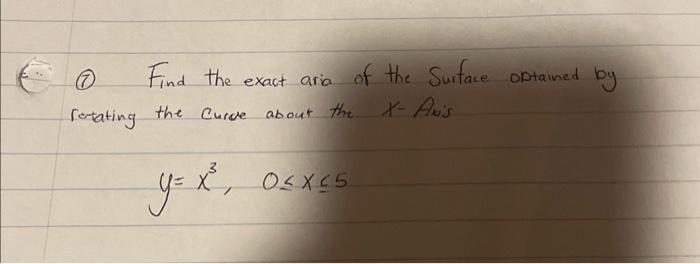 ⑦ Find the exact aria of the Surface obtained by
rotating the Curve about the X-Axis
y = x³, 0 ≤ x ≤ 5